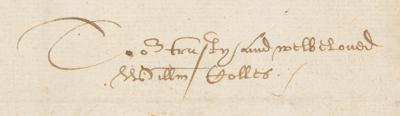 To or trusty and welbeloved
Willm Colles